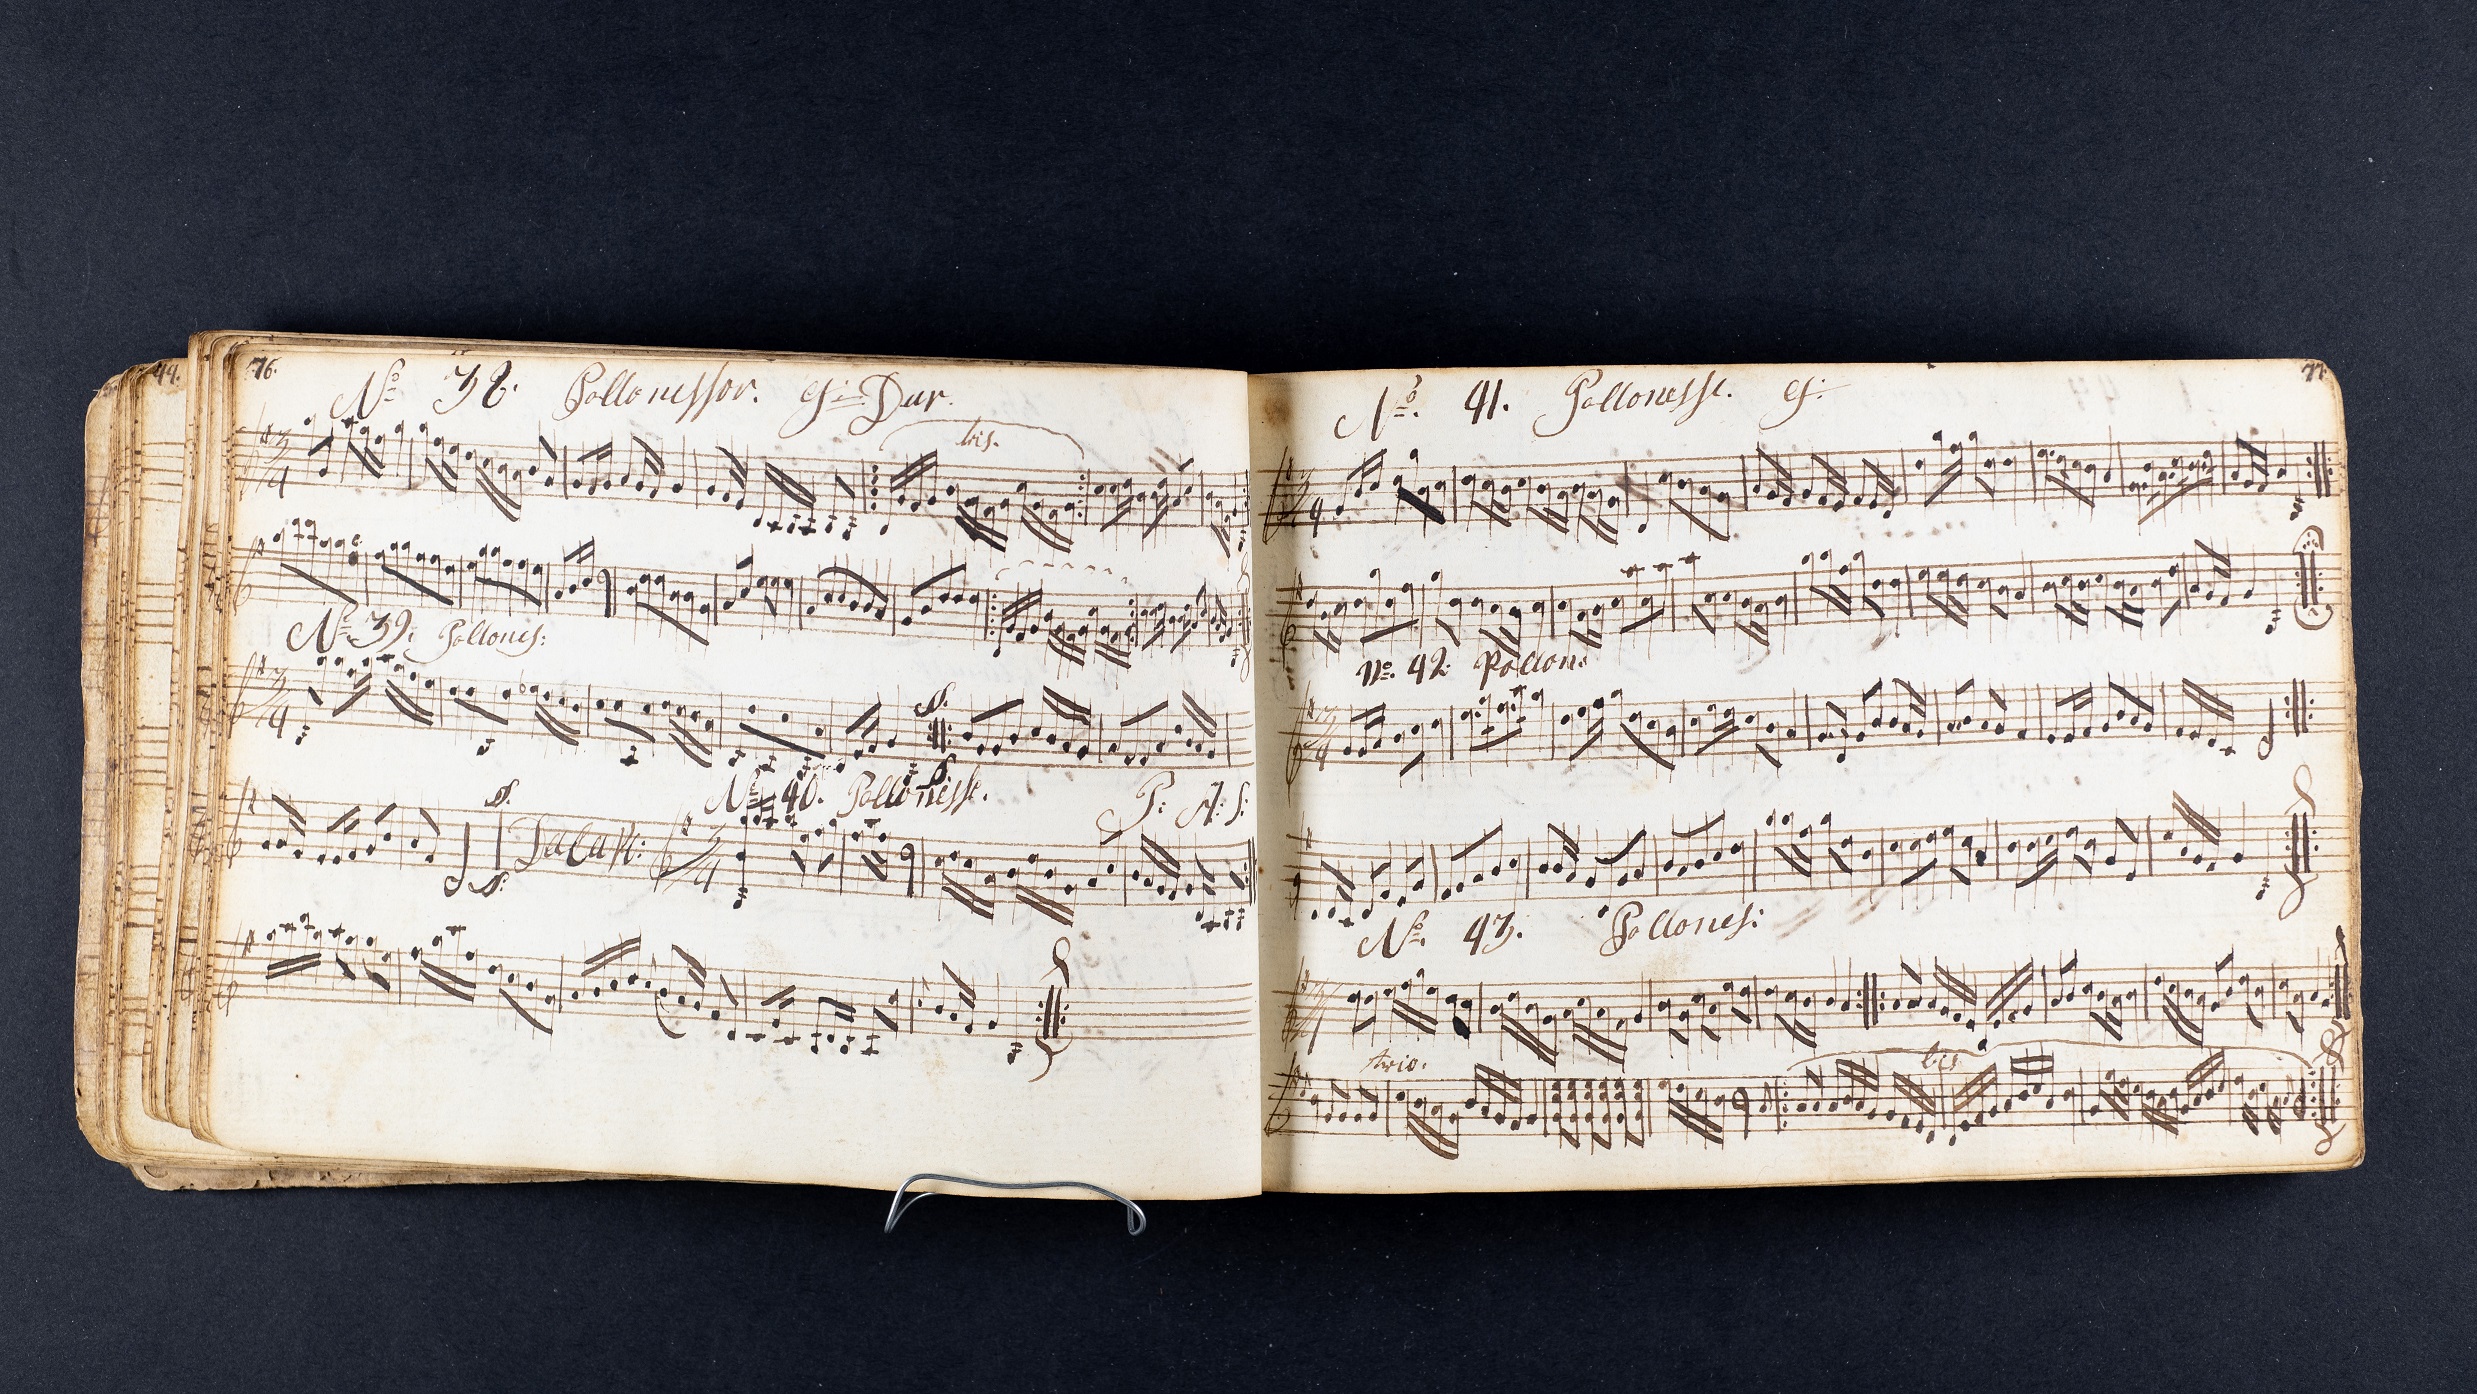 44.
76.
No 38. Pollonessor. G: Dur.
3/4
bis.
No 39: Pollones:
3/4
No 40. Pollonesse. P: A: S:
DaCapo:
3/4
77
No. 41. Pollonesse. G:
3/4
No. 42. Pollon:
3/4
No. 43. Pollones:
3/4
trio. bis